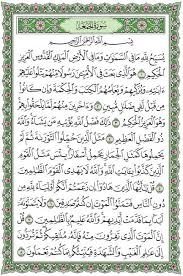 سُورَةُ الجُمُعَةِ
بِسْمِ ٱللَّهِ ٱلرَّحْمَٰنِ ٱلرَّحِيمِ
يُسَبِّحُ لِلَّهِ مَا فِي ٱلسَّمَٰوَٰتِ وَمَا فِي ٱلْأَرْضِ ٱلْمَلِكِ ٱلْقُدُّوسِ ٱلْعَزِيزِ
ٱلْحَكِيمِ ١ هُوَ ٱلَّذِي بَعَثَ فِي ٱلْأُمِّيِّـۧنَ رَسُولًا مِّنْهُمْ يَتْلُوا۟ عَلَيْهِمْ
ءَايَٰتِهِۦ وَيُزَكِّيهِمْ وَيُعَلِّمُهُمُ ٱلْكِتَٰبَ وَٱلْحِكْمَةَ وَإِن كَانُوا۟
مِن قَبْلُ لَفِي ضَلَٰلٍ مُّبِينٍ ٢ وَءَاخَرِينَ مِنْهُمْ لَمَّا يَلْحَقُوا۟ بِهِمْ
وَهُوَ ٱلْعَزِيزُ ٱلْحَكِيمُ ٣ ذَٰلِكَ فَضْلُ ٱللَّهِ يُؤْتِيهِ مَن يَشَآءُ وَٱللَّهُ
ذُو ٱلْفَضْلِ ٱلْعَظِيمِ ٤ مَثَلُ ٱلَّذِينَ حُمِّلُوا۟ ٱلتَّوْرَىٰةَ ثُمَّ
لَمْ يَحْمِلُوهَا كَمَثَلِ ٱلْحِمَارِ يَحْمِلُ أَسْفَارًۢا بِئْسَ مَثَلُ ٱلْقَوْمِ
ٱلَّذِينَ كَذَّبُوا۟ بِـَٔايَٰتِ ٱللَّهِ وَٱللَّهُ لَا يَهْدِي ٱلْقَوْمَ ٱلظَّٰلِمِينَ ٥
قُلْ يَٰٓأَيُّهَا ٱلَّذِينَ هَادُوٓا۟ إِن زَعَمْتُمْ أَنَّكُمْ أَوْلِيَآءُ لِلَّهِ مِن
دُونِ ٱلنَّاسِ فَتَمَنَّوُا۟ ٱلْمَوْتَ إِن كُنتُمْ صَٰدِقِينَ ٦ وَلَا يَتَمَنَّوْنَهُۥٓ
أَبَدًۢا بِمَا قَدَّمَتْ أَيْدِيهِمْ وَٱللَّهُ عَلِيمٌۢ بِٱلظَّٰلِمِينَ ٧ قُلْ إِنَّ
ٱلْمَوْتَ ٱلَّذِي تَفِرُّونَ مِنْهُ فَإِنَّهُۥ مُلَٰقِيكُمْ ثُمَّ تُرَدُّونَ
إِلَىٰ عَٰلِمِ ٱلْغَيْبِ وَٱلشَّهَٰدَةِ فَيُنَبِّئُكُم بِمَا كُنتُمْ تَعْمَلُونَ ٨